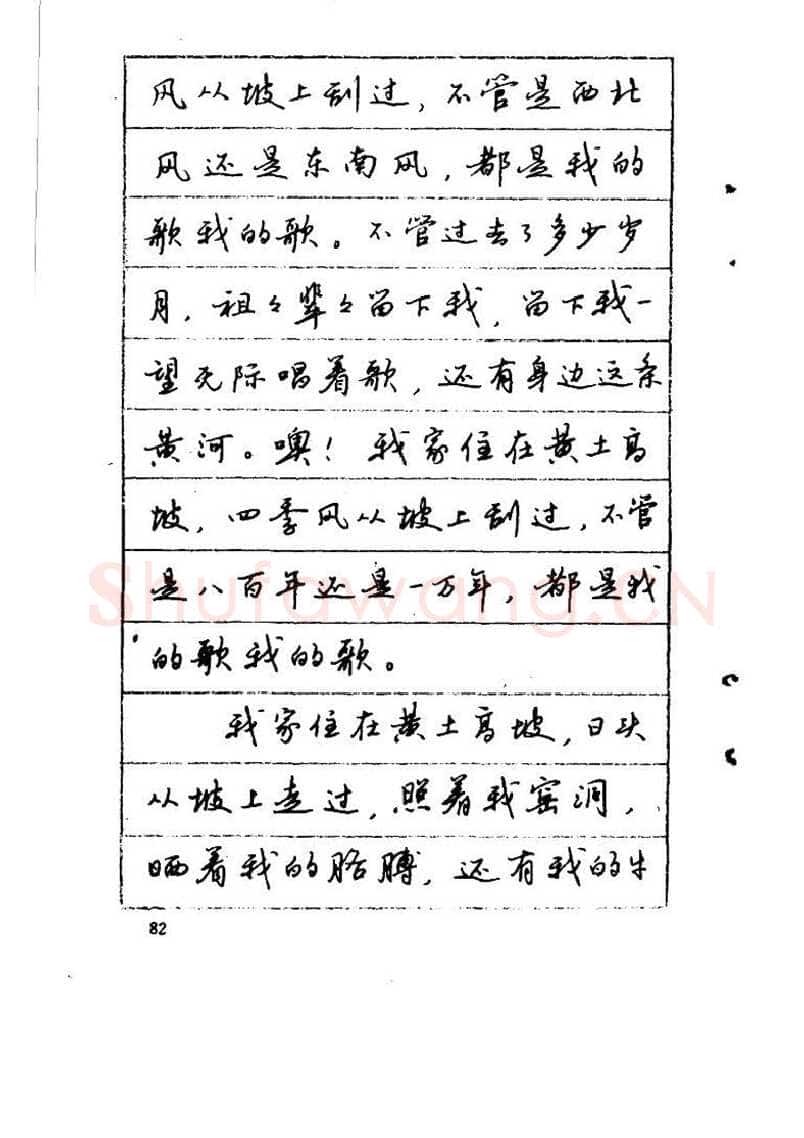 风从坡上刮过，不管是西北
风还是东南风，都是我的
歌我的歌。不管过去了多少岁
月，祖々辈々留下我，留下我一
望无际唱着歌，还有身边这条
黄河。噢！我家住在黄土高
坡，四季风从坡上刮过，不管
是八百年还是一万年，都是我
的歌我的歌。
我家住在黄土高坡，日头
从坡上走过，照着我窑洞，
晒着我的胳膊，还有我的牛
82
Shufawang.CN